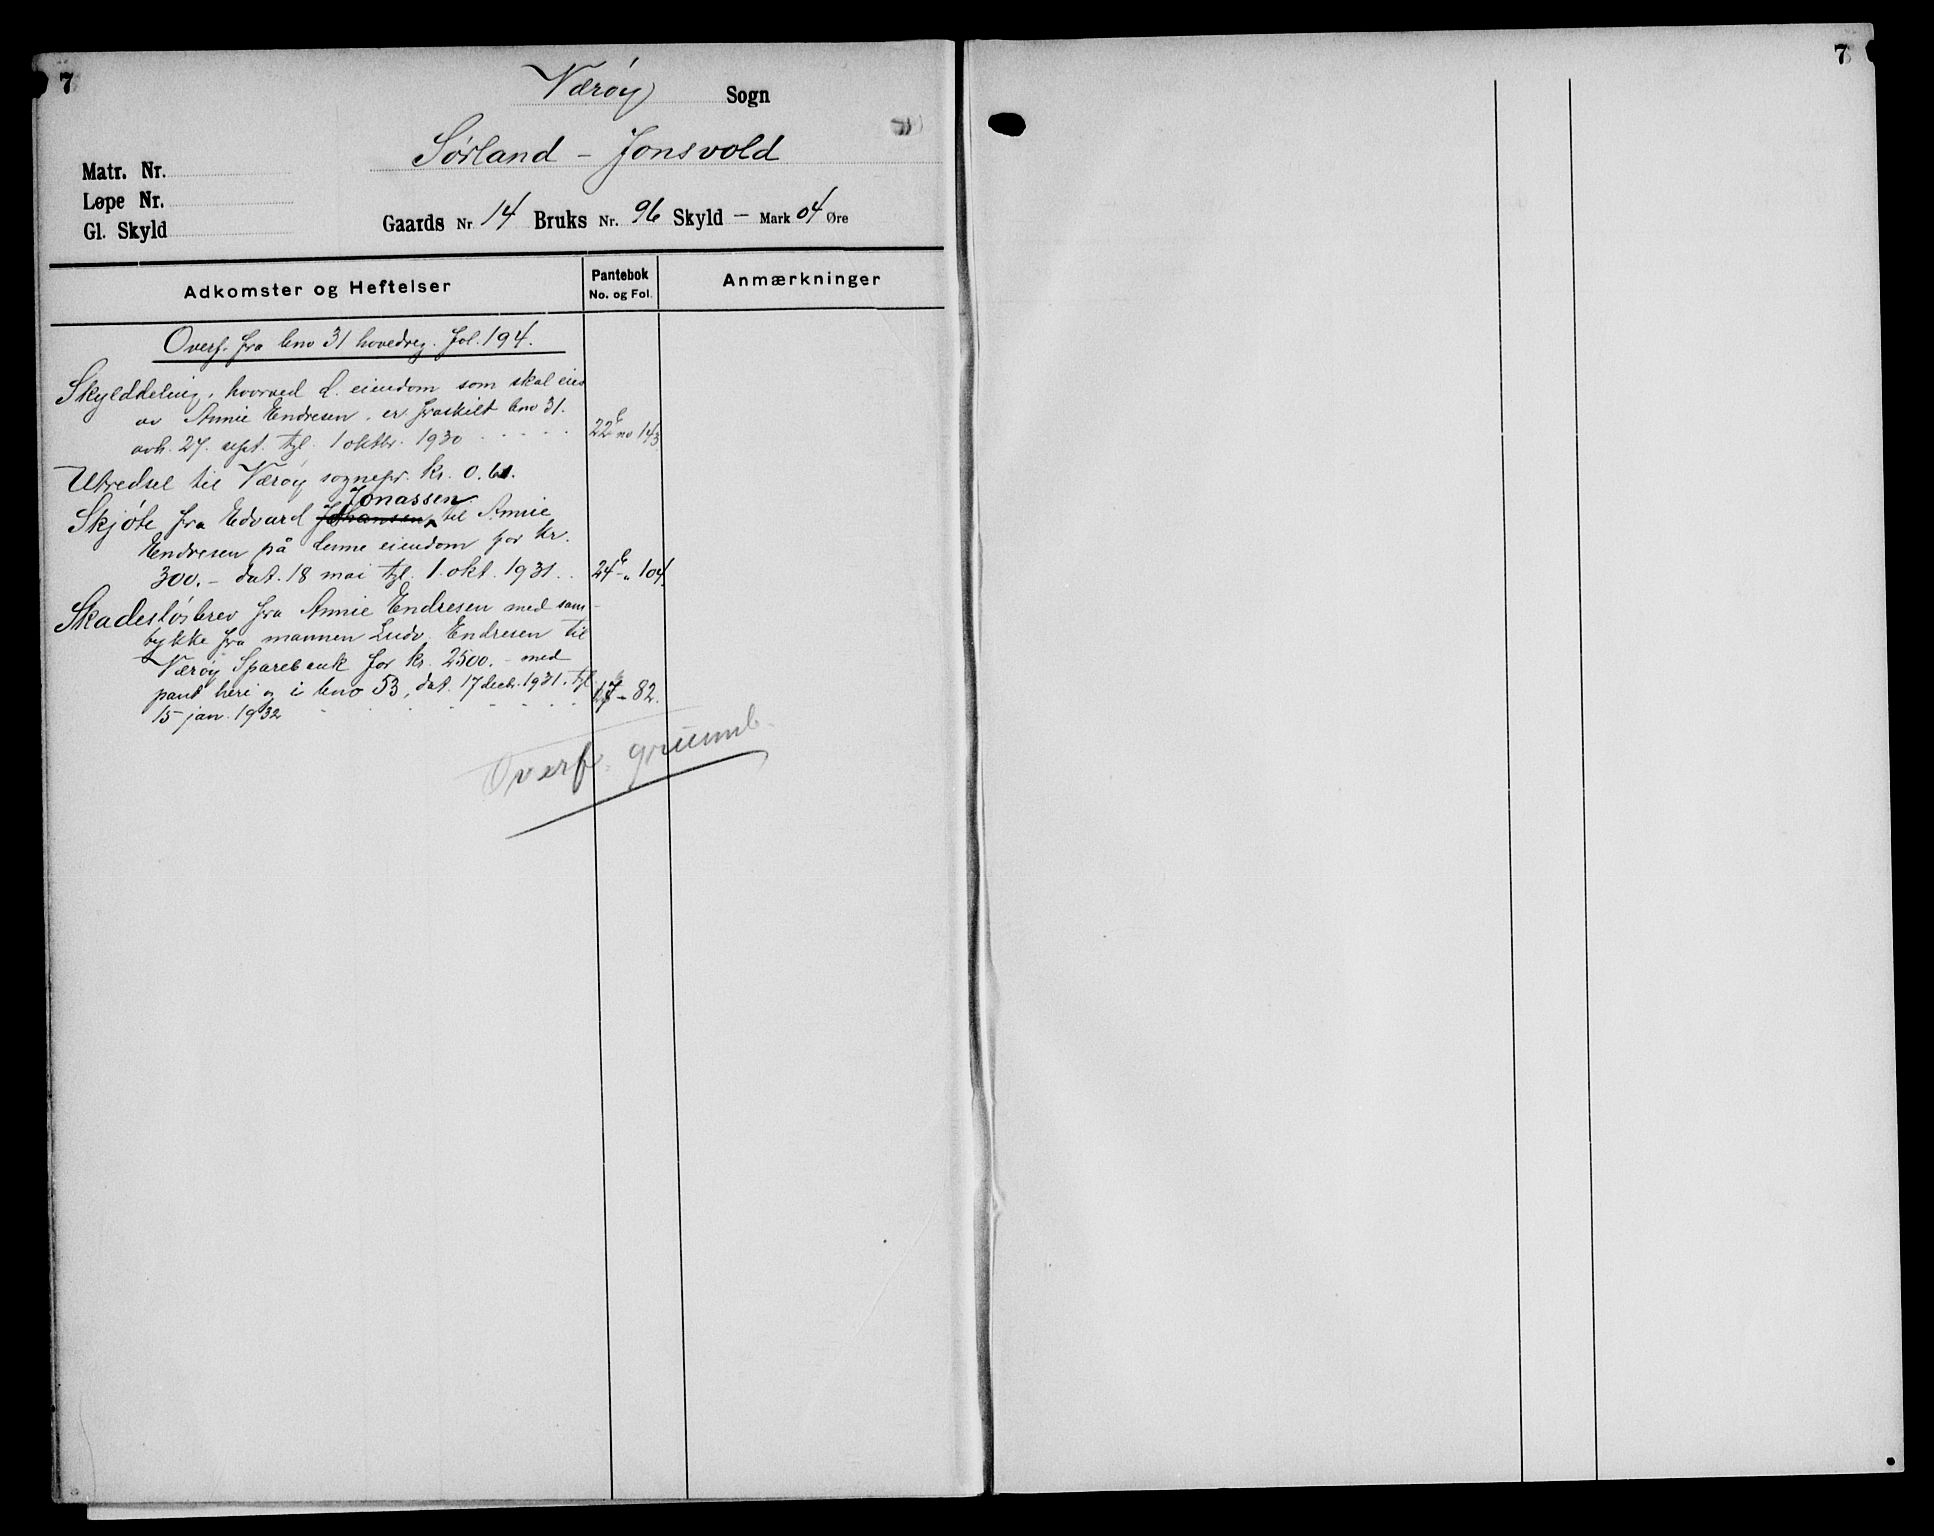 7
Værøy Sogn
Sørland - Jonsvold
Matr. Nr.
Løpe Nr.
Gl. Skyld
Gaards Nr. 14 Bruks Nr. 96 Skyld – Mark 04 Øre
Adkomster og Heftelser
Pantebok
No. og Fol.
Anmærkninger
Overf. fra bno 31 hovedreg. fol. 194.
Skylddeling, hvorved d. eiendom som skal eies
av Annie Endresen, er fraskilt bno 31.
avh. 27. sept. tgl. 1 oktbr. 1930 . . . . . 22 b no 143
Utredsel til Værøy sognepr. kr. 0.61.
Jonassen
Skjøte fra Edvard Johansen til Annie
Endresen på denne eiendom for kr.
300.- dat. 18 mai tgl. 1. okt. 1931 . . 24 b - „ 104.
Skadesløsbrev fra Annie Endresen med sam-
tykke fra mannen Ludv. Endresen til
Værøy Sparebank for kr. 2500.- med
pant heri og i bno 53, dat. 17 decbr. 1931. tgl
15 jan. 1932 . . . . . . - 82.
Overf. grunnb.
7